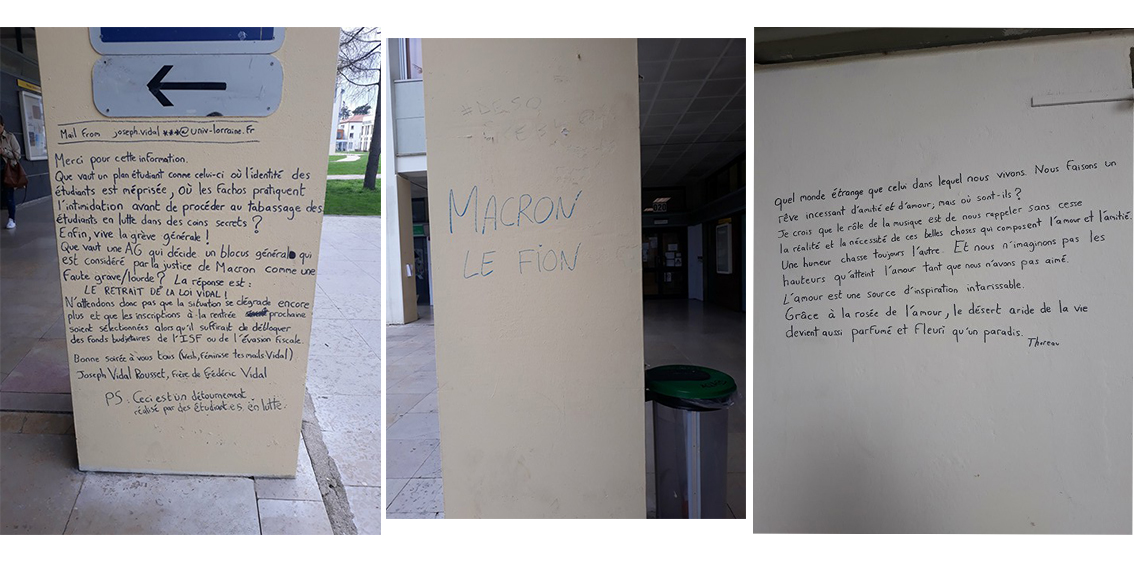 Mail From joseph.vidal ***@univ-lorraine.fr
Merci pour cette information.
Que vaut un plan étudiant comme celui-ci où l'identité des
étudiants est méprisée, où les fachos pratiquent
l'intimidation avant de procéder au tabassage des
étudiants en lutte dans des coins secrets ?
Enfin, vive la grève générale !
Que vaut une AG qui décide un blocus général qui
est considéré par la justice de Macron comme une
faute grave/lourde ? La réponse est :
LE RETRAIT DE LA LOI VIDAL !
N'attendons donc pas que la situation se dégrade encore
plus et que les inscriptions à la rentrée prochaine
soient sélectionnées alors qu'il suffirait de débloquer
des fonds budgétaires de l'ISF ou de l'évasion fiscale.
Bonne soirée à vous tous (Wesh, féminise tes mails Vidal)
Joseph Vidal Rousset, frère de Frédéric Vidal
PS : Ceci est un détournement
réalisé par des étudiant.e.s en lutte.
MACRON
LE FION
quel monde étrange que celui dans lequel nous vivons. Nous faisons un
rêve incessant d'amitié et d'amour, mais où sont-ils ?
Je crois que le rôle de la musique est de nous rappeler sans cesse
la réalité et la nécessité de ces belles choses qui composent l'amour et l'amitié.
Une humeur chasse toujours l'autre. Et nous n'imaginons pas les
hauteurs qu'atteint l'amour tant que nous n'avons pas aimé.
L'amour est une source d'inspiration intarissable.
Grâce à la rosée de l'amour, le désert aride de la vie
devient aussi parfumé et fleuri qu'un paradis.
Thoreau